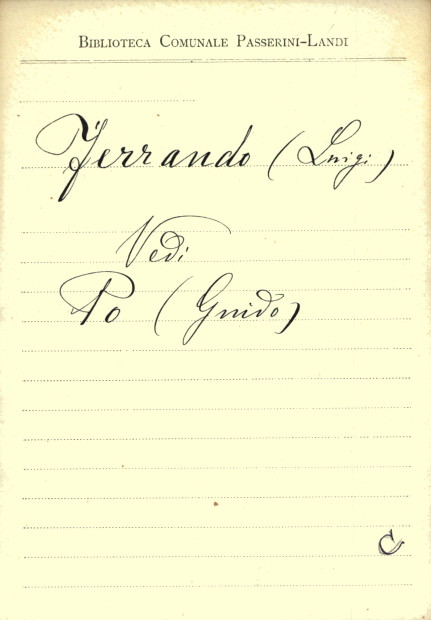 BIBLIOTECA COMUNALE PASSERINI-LANDI
Ferrando (Luigi)
Vedi
Po (Guido)
C